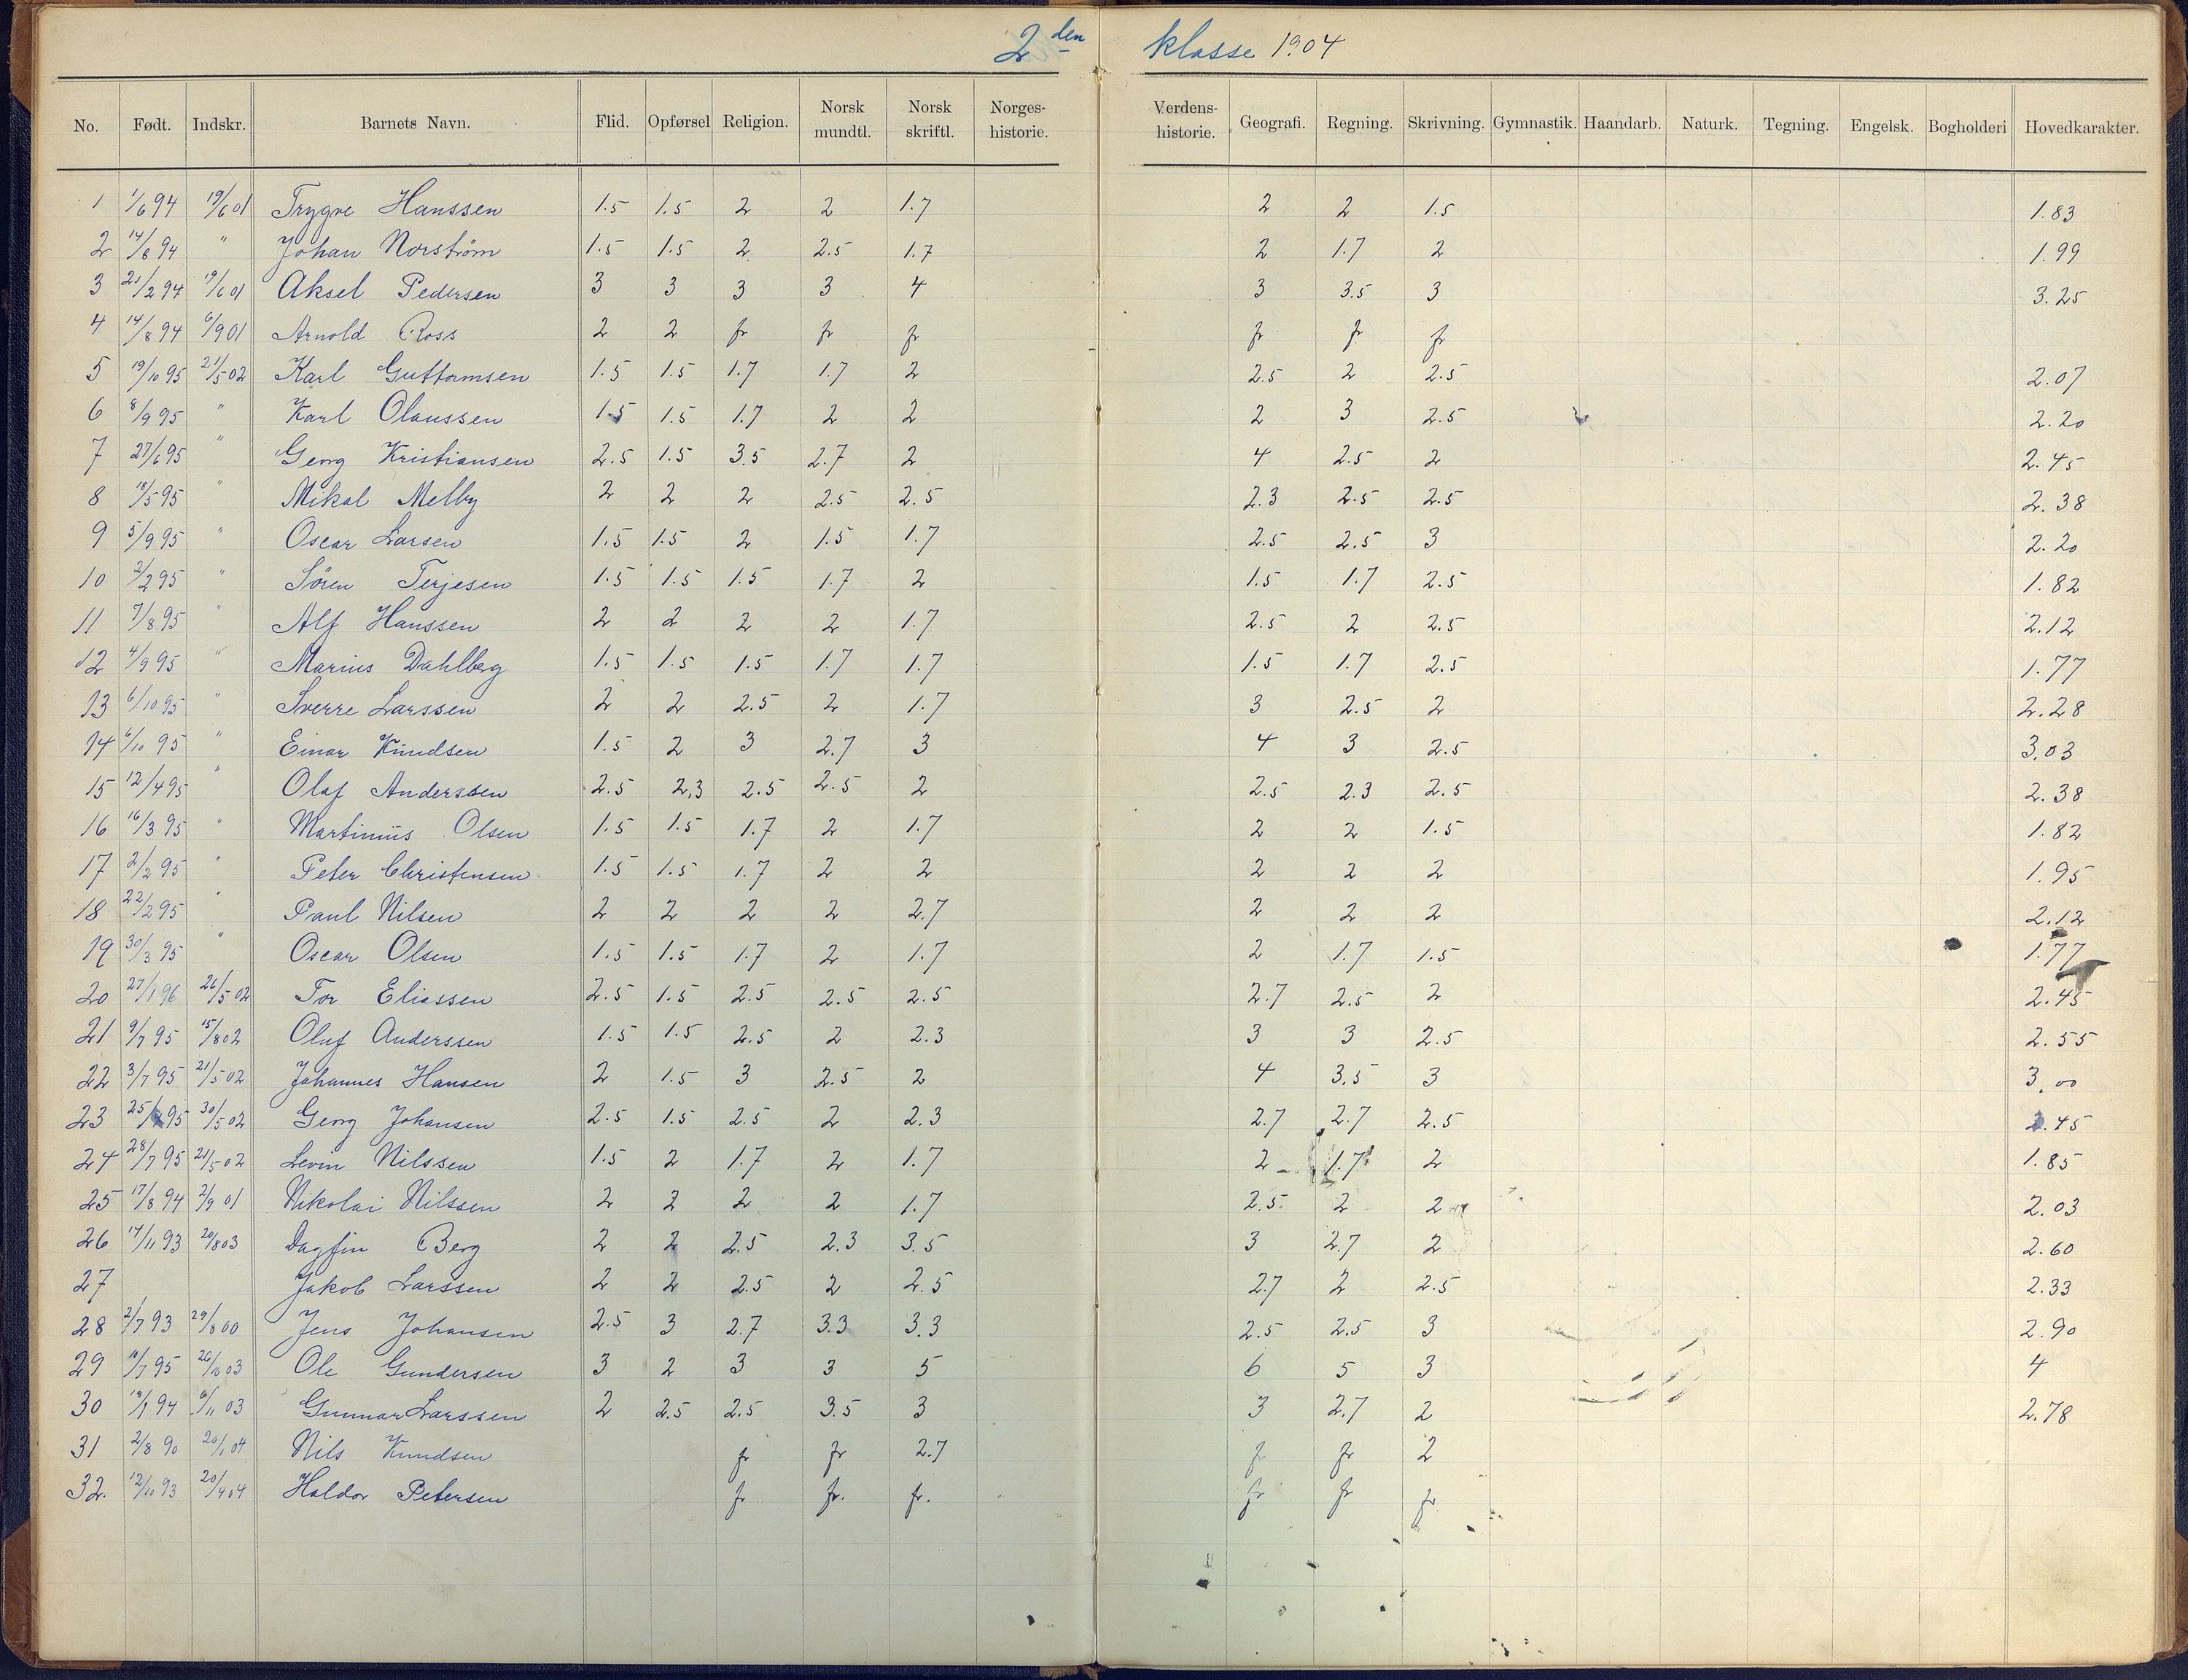 2den klasse 1904
No. Født. Indskr. Barnets Navn. Flid. Opførsel Religion. Norsk mundtl. Norsk skriftl. Norges-historie. Verdens-historie. Geografi. Regning. Skrivning. Gymnastik. Haandarb. Naturk. Tegning. Engelsk. Bogholderi Hovedkarakter.
1 1/6 94 19/6 01 Trygve Hanssen 1.5 1.5 2 2 1.7 2 2 1.5 1.83
2 14/8 94 " Johan Norström 1.5 1.5 2 2.5 1.7 2 1.7 2 1.99
3 21/2 94 19/6 01 Aksel Pedersen 3 3 3 3 4 3 3.5 3 3.25
4 14/8 94 6/9 01 Arnold Ross 2 2 fr fr fr fr fr fr
5 19/10 95 21/5 02 Karl Guttormsen 1.5 1.5 1.7 1.7 2 2.5 2 2.5 2.07
6 8/9 95 " Karl Olaussen 1.5 1.5 1.7 2 2 2 3 2.5 2.20
7 27/6 95 " Georg Kristiansen 2.5 1.5 3.5 2.7 2 4 2.5 2 2.45
8 18/5 95 " Mikal Melby 2 2 2 2.5 2.5 2.3 2.5 2.5 2.38
9 5/9 95 " Oscar Larsen 1.5 1.5 2 1.5 1.7 2.5 2.5 3 2.20
10 2/2 95 " Sören Terjesen 1.5 1.5 1.5 1.7 2 1.5 1.7 2.5 1.82
11 7/8 95 " Alf Hanssen 2 2 2 2 1.7 2.5 2 2.5 2.12
12 4/9 95 " Marius Dahlberg 1.5 1.5 1.5 1.7 1.7 1.5 1.7 2.5 1.77
13 6/10 95 " Sverre Larssen 2 2 2.5 2 1.7 3 2.5 2 2.28
14 6/10 95 " Einar Knudsen 1.5 2 3 2.7 3 4 3 2.5 3.03
15 12/4 95 " Olaf Anderssen 2.5 2,3 2.5 2.5 2 2.5 2.3 2.5 2.38
16 16/3 95 " Martinius Olsen 1.5 1.5 1.7 2 1.7 2 2 1.5 1.82
17 2/2 95 " Peter Christensen 1.5 1.5 1.7 2 2 2 2 2 1.95
18 22/2 95 " Paul Nilsen 2 2 2 2 2.7 2 2 2 2.12
19 30/3 95 " Oscar Olsen 1.5 1.5 1.7 2 1.7 2 1.7 1.5 1.77
20 27/1 96 26/5 02 Tor Eliassen 2.5 1.5 2.5 2.5 2.5 2.7 2.5 2 2.45
21 9/7 95 15/8 02 Oluf Anderssen 1.5 1.5 2.5 2 2.3 3 3 2.5 2.55
22 3/7 95 21/5 02 Johannes Hansen 2 1.5 3 2.5 2 4 3.5 3 3.00
23 95 30/5 02 Georg Johansen 2.5 1.5 2.5 2 2.3 2.7 2.7 2.5 2.45
24 28/7 95 21/5 02 Levin Nilssen 1.5 2 1.7 2 1.7 2 1.7 2 1.85
25 17/8 94 2/9 01 Nikolai Nilssen 2 2 2 2 1.7 2.5 2 2 2.03
26 17/11 93 20/8 03 Dagfin Berg 2 2 2.5 2.3 3.5 3 2.7 2 2.60
27 Jakob Larssen 2 2 2.5 2 2.5 2.7 2 2.5 2.33
28 2/7 93 29/8 00 Jens Johansen 2.5 3 2.7 3.3 3.3 2.5 2.5 3 2.90
29 95 03 Ole Gundersen 3 2 3 3 5 6 5 3 4
30 94 6/11 03 Gunnar Larssen 2 2.5 2.5 3.5 3 3 2.7 2 2.78
31 2/8 90 20/1 04 Nils Knudsen fr fr 2.7 fr fr 2
32. 12/10 93 20/4 04 Haldor Petersen fr fr. fr. fr fr fr